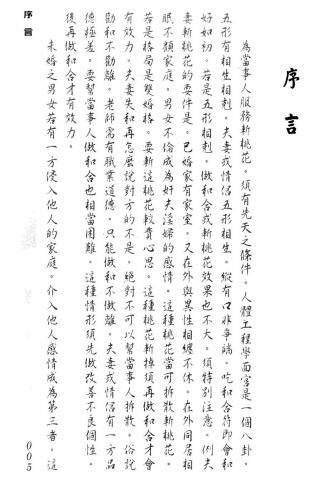 序言
為當事人服務斬桃花。須有先天之條件。人體工程學面宮是一個八卦。
五形有相生相剋。夫妻或情侶五形相生。縱有口非爭端。吃和合符即會和
好如初。若是五形相剋。做和合或斬桃花效果也不大。須特別注意。例夫
桃花的要件是。已婚家有家室。又在外與異性相纏不休。在外同居相
眠不顧家庭。男女不倫成為奸夫淫婦的感情。這種桃花當可拆散斬桃花。
若是格局是雙婚格。要斬這桃花較費心思。這種桃花斬掉須再做和合才會
有效力。夫妻失和再怎麼說對方的不是。絕對不可以幫當事人拆散。俗說
勸和不勸離。老師需有職業道德。只能做和不做離。夫妻或情侶有一方品
德極差。要幫當事人做和合也相當困難。這種情形須先做改善不良個性。
後再做和合才有效力。
未婚之男女若有一方侵入他人的家庭。介入他人感情成為第三者。這
序言
005